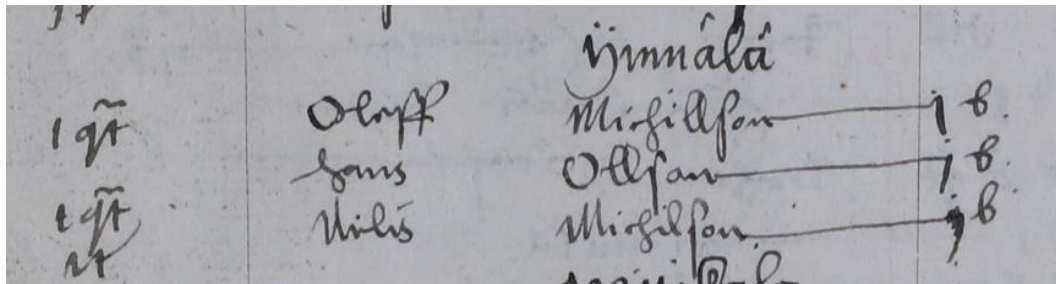 Ÿmnälä
1 qt Oleff Michillson j b.
Hans Ollson j b.
1 qt Nilis Michilson j b